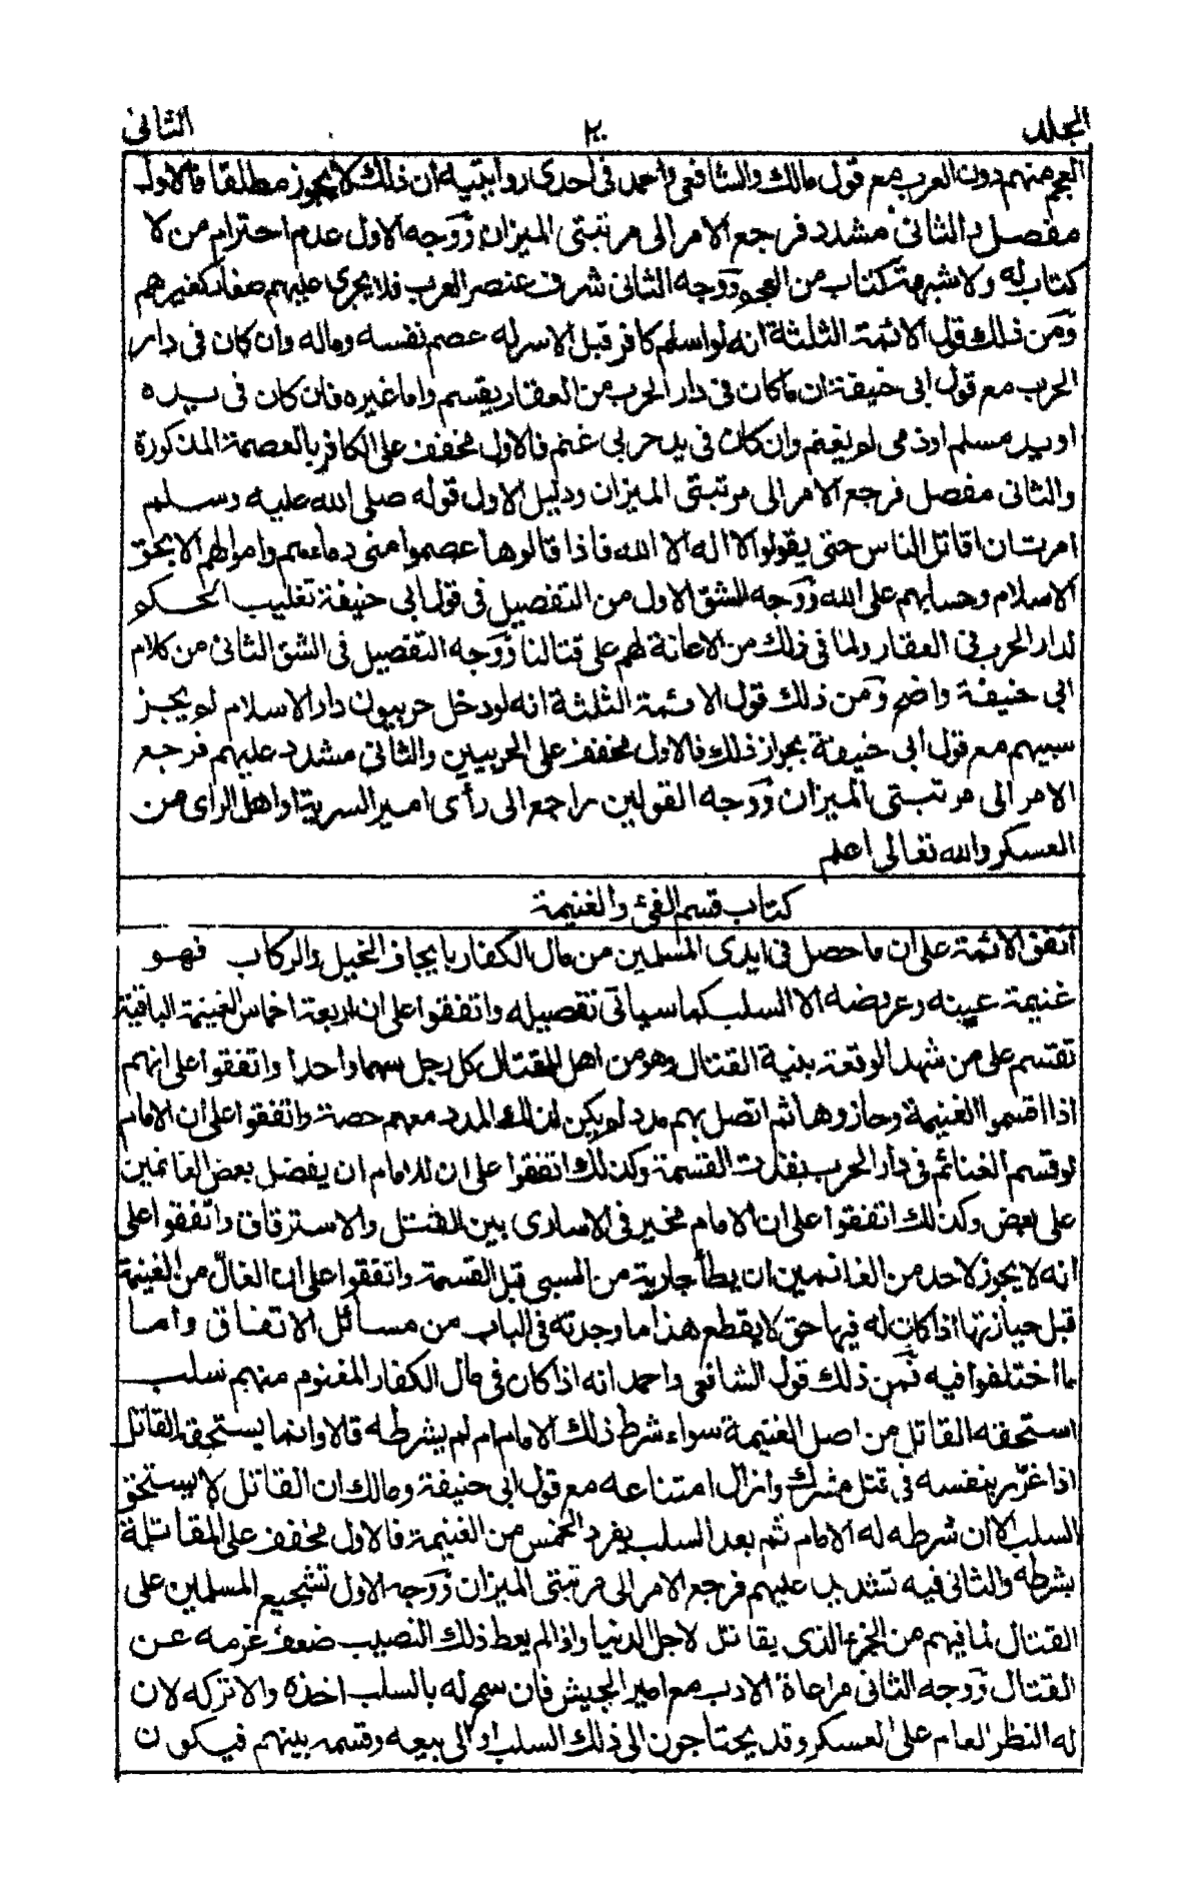 المجلد ٢٠ الثانى
العجم منهم دون العرب مع قول مالك والشافعى واحمد فى احدى روايتيه ان ذلك لا يجوز مطلقا فالاول
مفصل والثانى مشدد فرجع الامر الى مرتبتى الميزان ووجه الاول عدم احترام من لا
كتاب له ولا شبهة كتاب من العجم ووجه الثانى شرف عنصر العرب فلا يجرى عليهم صغار كغيرهم
ومن ذلك قول الائمة الثلثة انه لو اسلم كافر قبل الاسر له عصم نفسه وماله وان كان فى دار
الحرب مع قول ابى حنيفة ان ما كان فى دار الحرب من العقار يقسم واما غيره فان كان فى يده
او يد مسلم او ذمى لم يغنم وان كان فى يد حربى غنم فالاول مخفف على الكافر بالعصمة المذكورة
والثانى مفصل فرجع الامر الى مرتبتى الميزان ودليل الاول قوله صلى الله عليه وسلم
امرت ان اقاتل الناس حتى يقولوا لا اله الا الله فاذا قالوها عصموا منى دماءهم واموالهم الا بحق
الاسلام وحسابهم على الله ووجه الشق الاول من التفصيل فى قول ابى حنيفة تغليب الحكم
لدار الحرب فى العقار ولما فى ذلك من الاعانة لهم على قتالنا ووجه التفصيل فى الشق الثانى من كلام
ابى حنيفة واضح ومن ذلك قول الائمة الثلثة انه لو دخل حربيون دار الاسلام لم يجز
سبيهم مع قول ابى حنيفة بجواز ذلك فالاول مخفف على الحربيين والثانى مشدد عليهم فرجع
الامر الى مرتبتى الميزان ووجه القولين راجع الى رأى امير السرية او اهل الراى من
العسكر والله تعالى اعلم
كتاب قسم الفئ والغنيمة
اتفق الائمة على ان ما حصل فى ايدى المسلمين من مال الكفار بايجاف الخيل والركاب فهو
غنيمة عينه وعرضه الا السلب كما سياتى تفصيله واتفقوا على ان اربعة اخماس الغنيمة الباقية
تقتسم على من شهد الوقعة بنية القتال وهو من اهل القتال لكل رجل سهما واحدا واتفقوا على انهم
اذا اقسموا الغنيمة وحازوها ثم اتصل بهم مدد لم يكن لذلك المدد معهم حصة واتفقوا على ان الامام
لو قسم الغنائم فى دار الحرب نفذت القسمة وكذلك اتفقوا على ان للامام ان يفضل بعض الغانمين
على بعض وكذلك اتفقوا على ان الامام مخير فى الاسارى بين القتل والاسترقاق واتفقوا على
انه لا يجوز لاحد من الغانمين ان يطأ جارية من المسبى قبل القسمة واتفقوا على ان الغالّ من الغنيمة
قبل حيازتها اذا كان له فيها حق لا يقطع هذا ما وجدته فى الباب من مسائل الاتفاق واما
ما اختلفوا فيه فمن ذلك قول الشافعى واحمد انه اذا كان فى مال الكفار المغنوم منهم سلب
استحقه القاتل من اصل الغنيمة سواء شرط ذلك الامام ام لم يشرطه قالا وانما يستحقه القاتل
اذا غرّر بنفسه فى قتل مشرك وازال امتناعه مع قول ابى حنيفة ومالك ان القاتل لا يستحق
السلب الا ان شرطه له الامام ثم بعد السلب يفرد الخمس من الغنيمة فالاول مخفف على المقاتلة
بشرطه والثانى فيه تشديد عليهم فرجع الامر الى مرتبتى الميزان ووجه الاول تشجيع المسلمين على
القتال لما فيهم من الجزء الذى يقاتل لاجل الدنيا واذا لم يعط ذلك النصيب ضعف عزمه عن
القتال ووجه الثانى مراعاة الادب مع امير الجيش فان سمح له بالسلب اخذه والا تركه لان
له النظر العام على العسكر وقد يحتاجون الى ذلك السلب او الى بيعه وقسمه بينهم فيكون